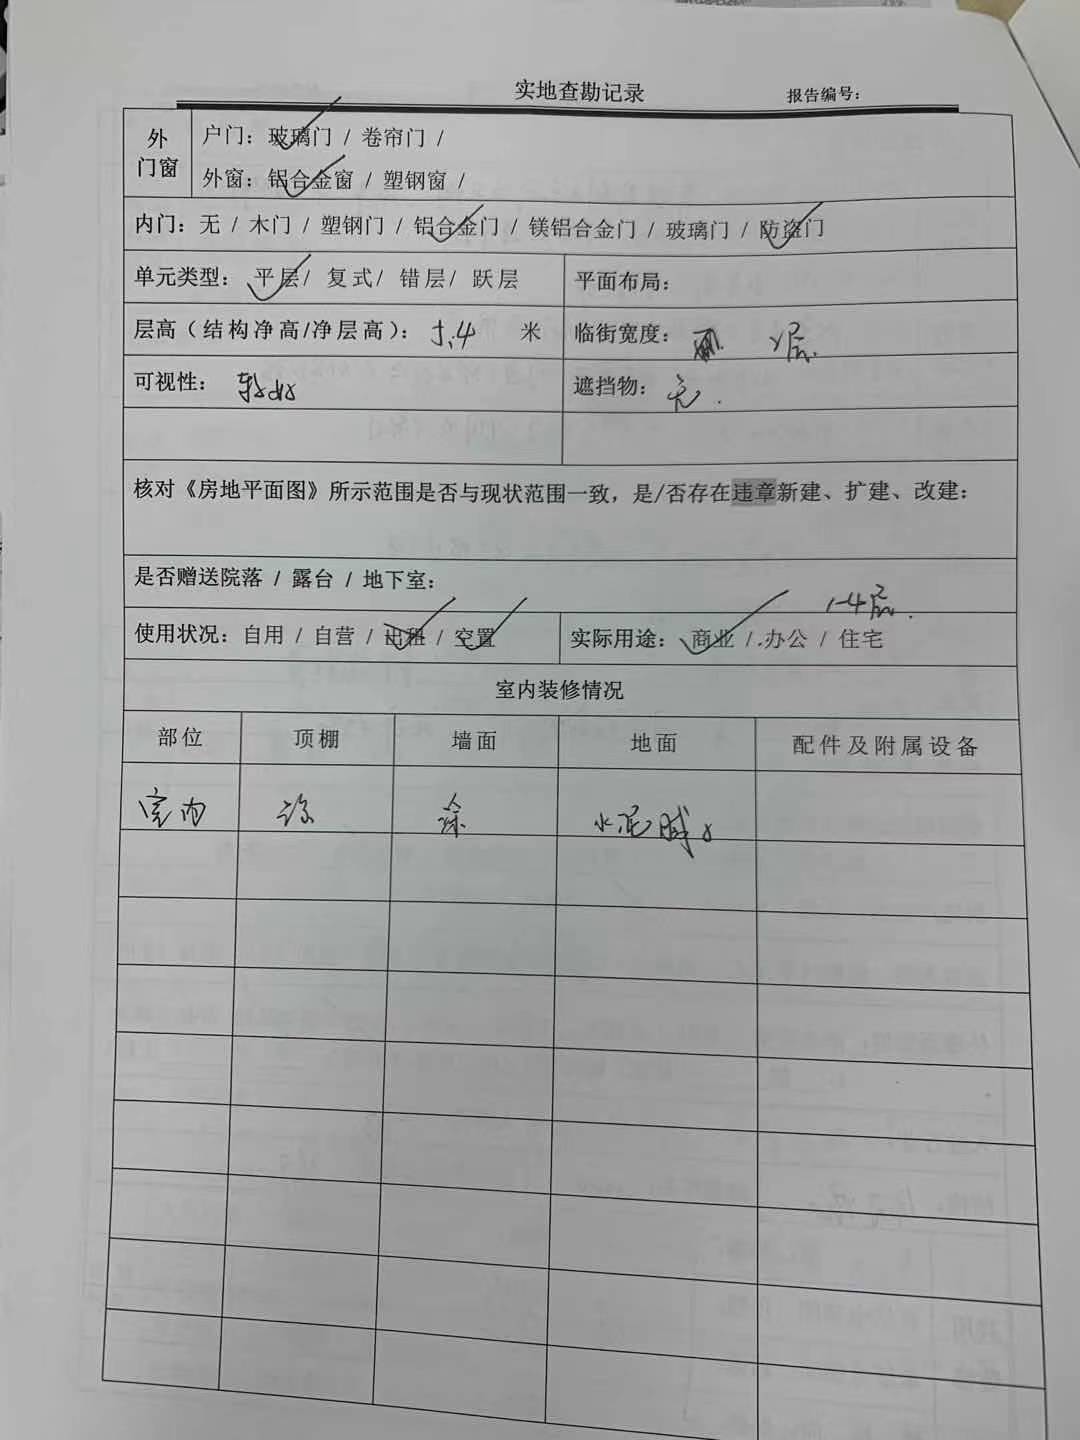 实地查勘记录 报告编号:
外门窗 户门: 玻璃门 / 卷帘门 /
外窗: 铝合金窗 / 塑钢窗 /
内门: 无 / 木门 / 塑钢门 / 铝合金门 / 镁铝合金门 / 玻璃门 / 防盗门
单元类型: 平层/ 复式/ 错层/ 跃层 平面布局:
层高(结构净高/净层高): 5.4 米 临街宽度:
可视性: 较好 遮挡物: 无.
核对《房地平面图》所示范围是否与现状范围一致, 是/否存在违章新建、扩建、改建:
是否赠送院落 / 露台 / 地下室:
1-4层.
使用状况: 自用 / 自营 / 出租 / 空置 实际用途: 商业 / 办公 / 住宅
室内装修情况
部位 顶棚 墙面 地面 配件及附属设备
室内 涂 涂 水泥